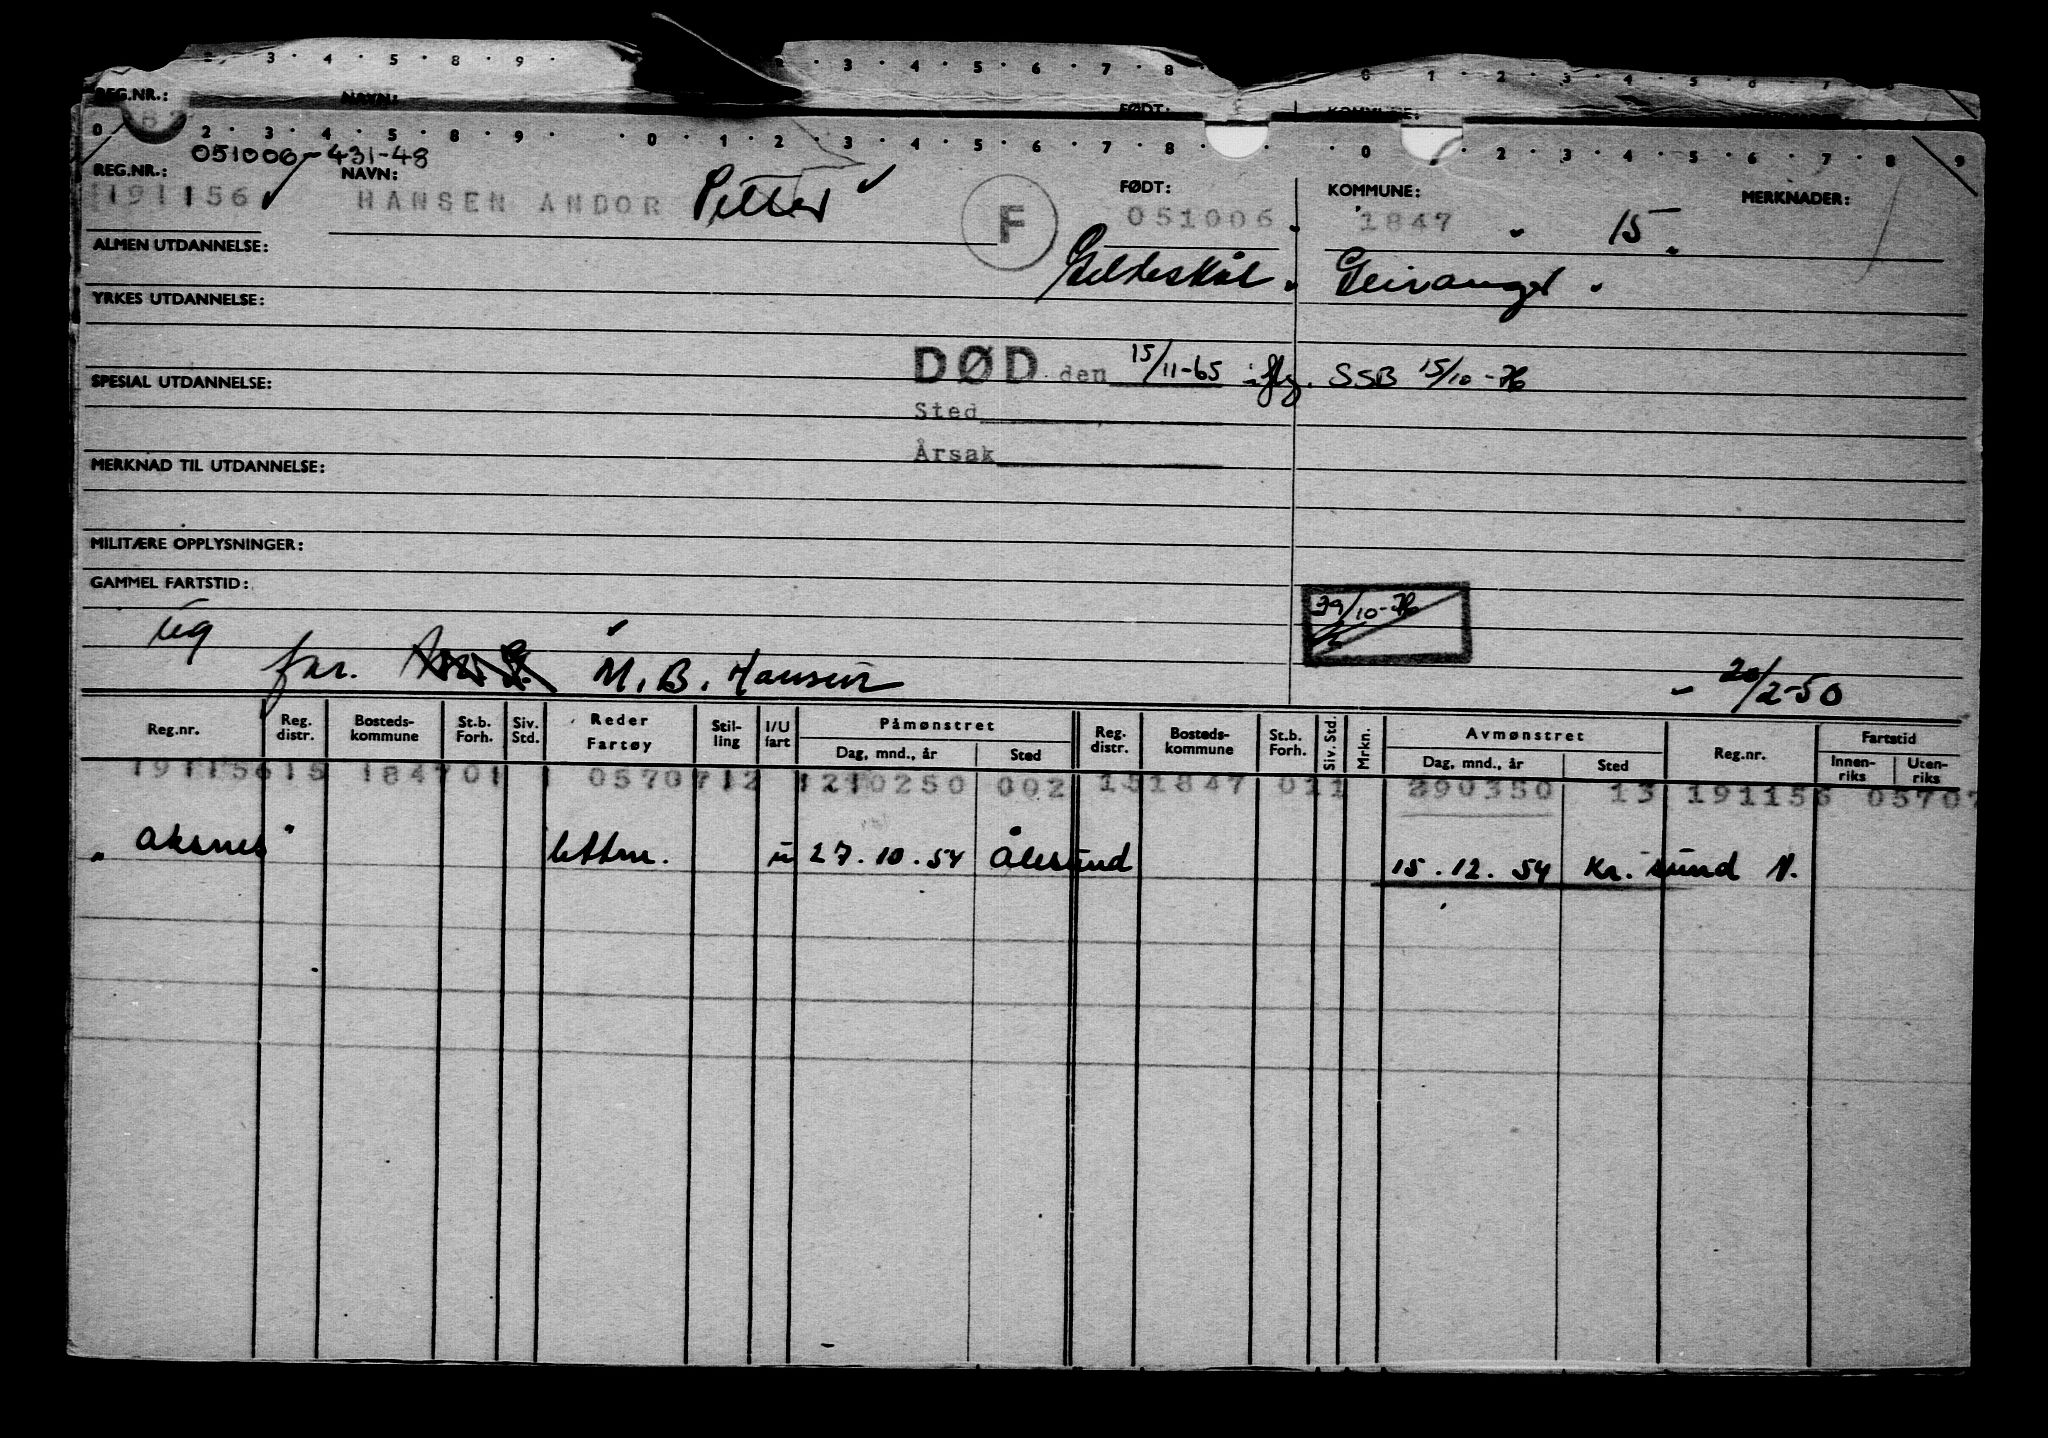 2 · 3 · 4 · 5 · 8 · 9 · 2 · 3 · 4 · 5 · 6 · 7 · 8 · 0 · 1 · 2 · 3 · 4 · 5 · 6 · 7 · 8
REG.NR.: NAVN: FØDT: KOMMUNE:
0 2 · 3 · 4 · 5 · 8 · 9 · 0 · 1 · 2 · 3 · 4 · 5 · 6 · 7 · 8 · 0 · 2 · 3 · 4 · 5 · 6 · 7 · 8 9
051006-431-48
REG.NR.: NAVN: FØDT: KOMMUNE: MERKNADER:
191156 HANSEN ANDOR Petter F 051006 1847 15
ALMEN UTDANNELSE:
Gildeskål Leirangel
YRKES UTDANNELSE:
DØD den 15/11-65 iflg. SSB 15/10-76
SPESIAL UTDANNELSE:
Sted
Årsak
MERKNAD TIL UTDANNELSE:
MILITÆRE OPPLYSNINGER:
GAMMEL FARTSTID:
29/10-76
ug
far. M. B. Hansen
- 20/2-50
Reg.nr. Reg. distr. Bosteds- kommune St.b. Forh. Siv. Std. Reder Fartøy Stil- ling I/U fart Påmønstret Dag, mnd., år Sted Reg. distr. Bosteds- kommune St.b. Forh. Siv. Std. Mrkn. Avmønstret Dag, mnd., år Sted Reg.nr. Fartstid Innen- riks Uten- riks
191156 15 1847 01 1 0570712 1210250 002 15 1847 011 290350 13 191156 05707
"Aksnes" lettm. u 27.10.54 Ålesund 15.12.54 Kr.sund N.